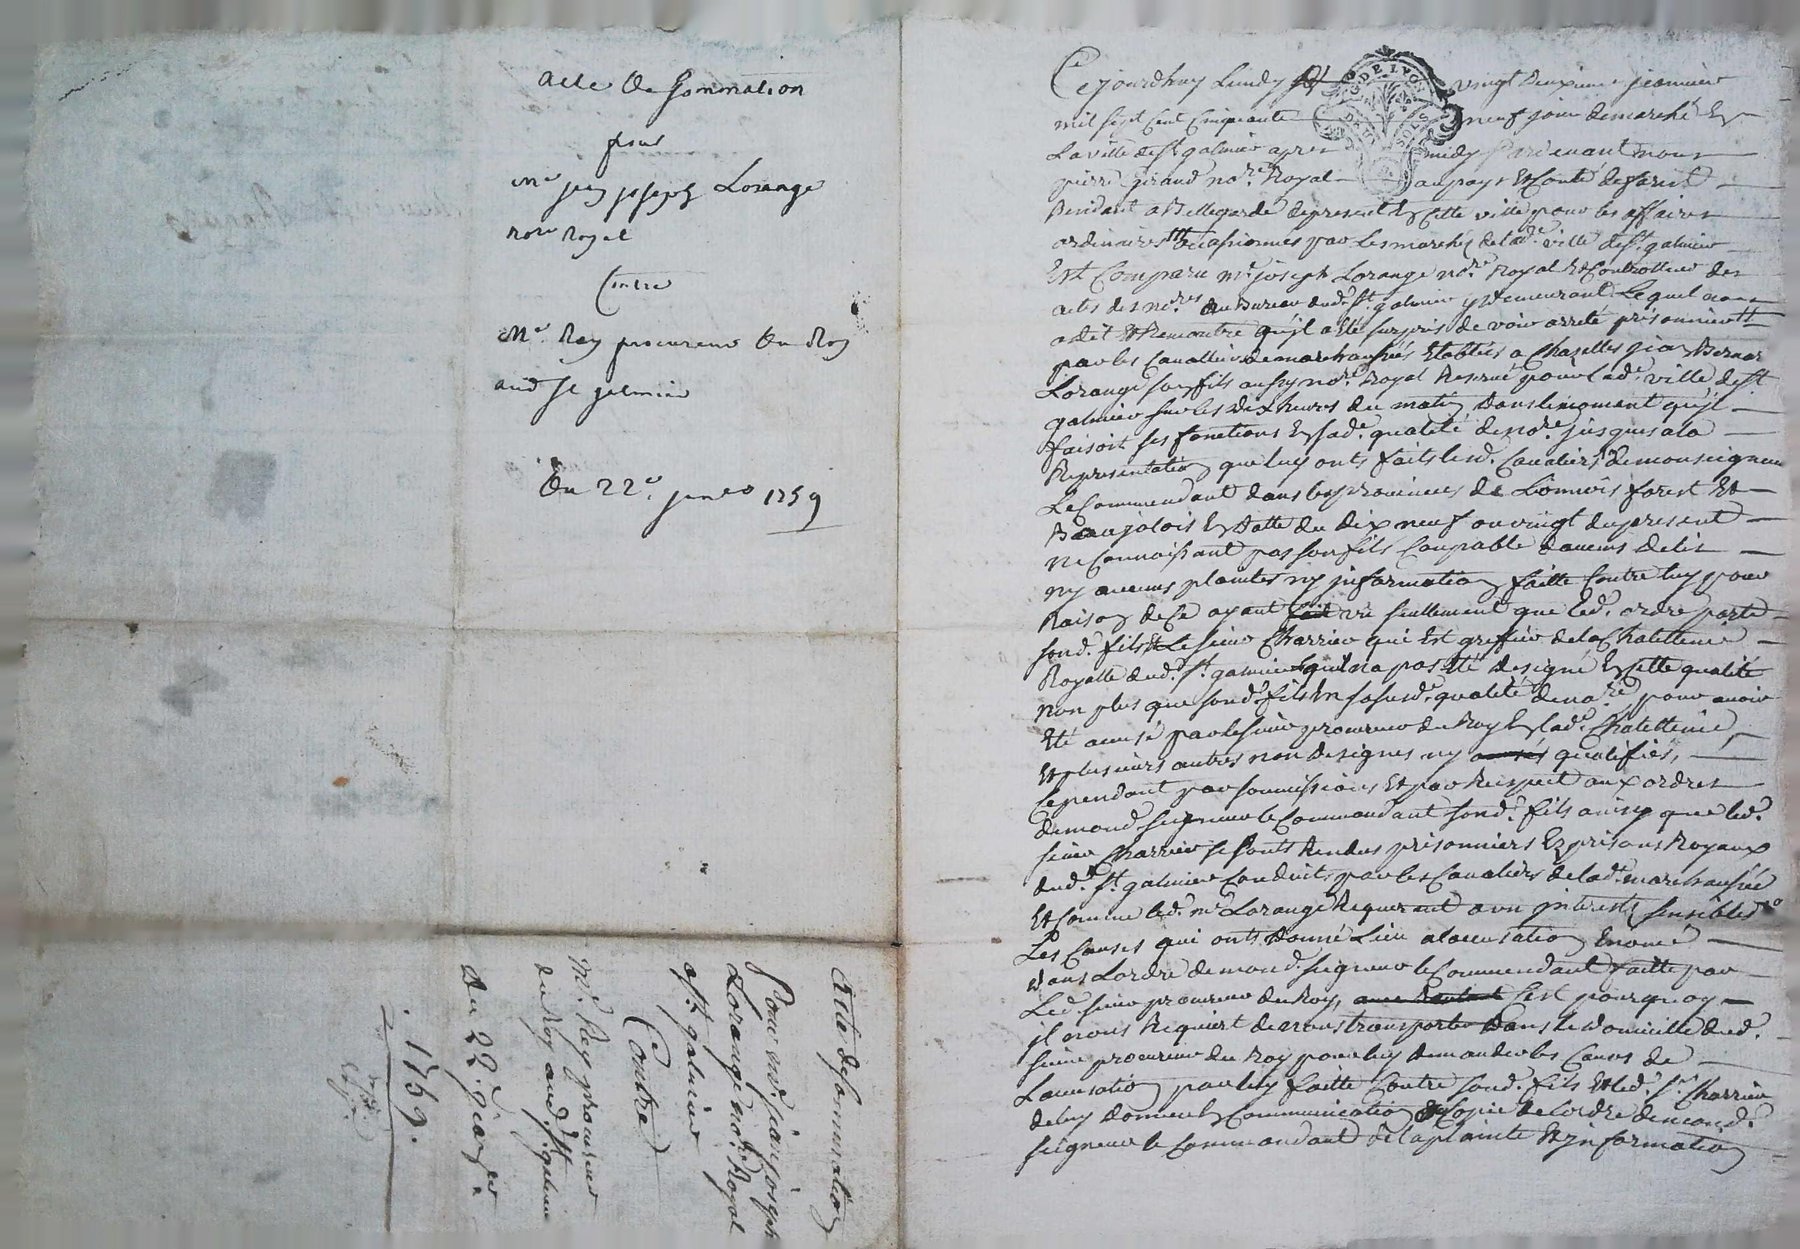 Acte De Sommation
pour
Me jean joseph Lorange
nore Royal
Contre
Me Rey procureur Du Roy
aud St galmier
Du 22e janer 1759
Acte de sommation
Pour me jean joseph
Lorange nore Royal
a St galmier
Contre
Me Rey procureur
du Roy aud St galmier
Du 22e janer
1759.
G. DE LYON
DEUX SOLS
Cejourdhuy Lundy vingt deuxieme jeanvier
mil sept Cent Cinquante neuf jour de marché En
La ville de St galmier apres midy Pardevant nous
pierre giraud nore Royal au pays Et Conté de forest
Residant a Bellegarde depresent En Cette ville pour les affaires
ordinaires occasionnés par les marchés de lade ville de St galmier
Est Comparu me joseph Lorange nore Royal Et Controlleur des
actes des nores Au Bureau dud. St galmier y Demeurant Lequel nous
a dit Et Remontré qu'il a Eté surpris de voir arreté prisonnier
par les Cavalliers de marechaussés Etablies a Chazelles jean Bernar
Lorange son fils aussy nore Royal Reservé pour lade ville de St
galmier sur les Dix heures du matin Dans le moment qu'il
faisoit ses fonctions En sade qualité de nore jusques a la
Representation que luy onts faits lesd. Cavaliers De monseigneur
Le Commendant dans les provinces de Lionnois forest Et
Beaujolois En Datte du Dix neuf ou vingt du present
ne Connoissant pas son fils Coupable d'aucuns Delit
ny aucuns plaintes ny information faitte Contre luy pour
Raison de Ce ayant vu seullement que led. ordre porte
sond. fils Et Le sieur Charrier qui Est greffier de la Chatellenie
Royalle dud. St galmier quil na pas Eté Designé En Cette qualité
non plus que sond. fils En sa susde qualité de nore pour avoir
Eté accusé par le sieur procureur du Roy En lade Chatellenie,
Et plusieurs autres non Designés ny qualifiés,
Cependant par soumissions Et par Respect aux ordres
de mond. seigneur le Commandant sond. fils ainsy que led.
sieur Charrier se sonts Rendus prisonniers En prisons Royaux
dud. St galmier Conduits par les Cavaliers de lade marechaussée
Et Comme led. me Lorange Requerant a un interest sensible
Les Causes qui onts Donné Lieu a lacusation Enoncé
Dans Lordre de mond. seigneur le Commendant faitte par
Led. sieur procureur du Roy, Cest pourquoy
il nous Requiert de nous transporter Dans le Domicille dud.
sieur procureur du Roy pour luy Demander les Causes de
Lacusation par luy faitte Contre sond. fils Et led. sr Charrier
de luy donner En Communication Copie de Lordre de mond.
seigneur le Commandant De la plainte Et information